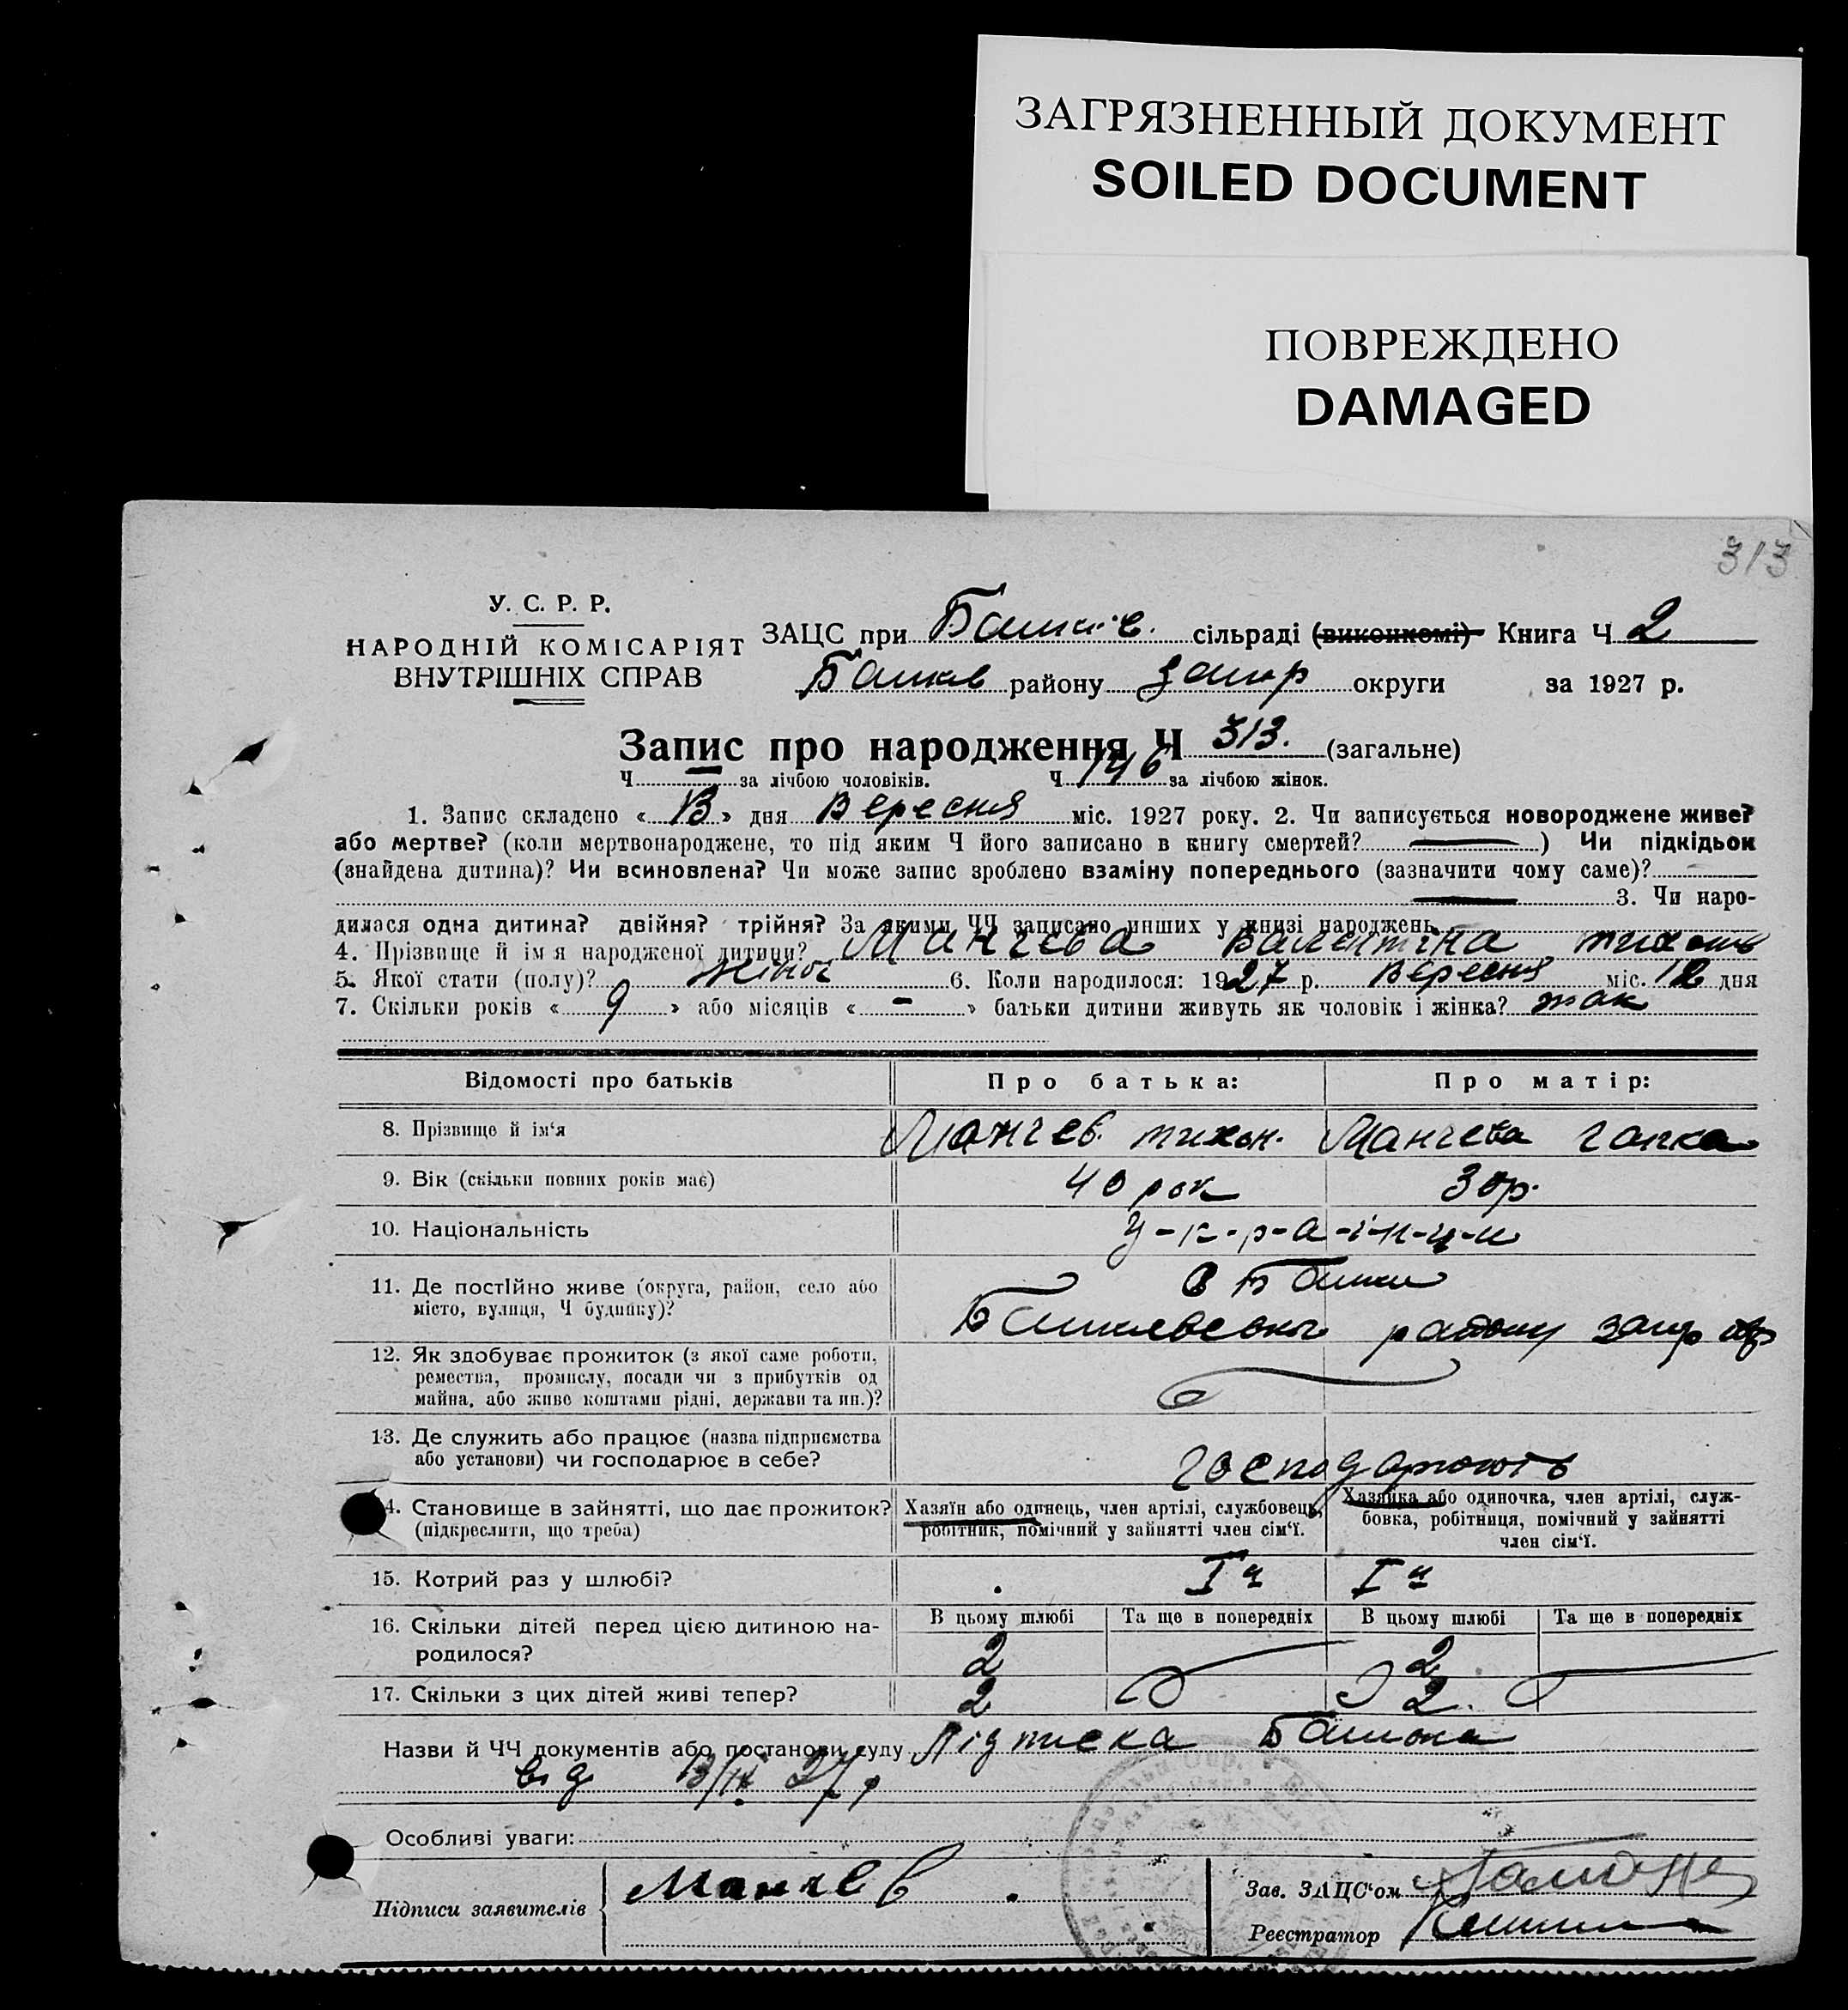 ЗАГРЯЗНЕННЫЙ ДОКУМЕНТ
SOILED DOCUMENT
ПОВРЕЖДЕНО
DAMAGED
313
У. С. Р. Р.
НАРОДНІЙ КОМІСАРІЯТ
ВНУТРІШНІХ СПРАВ
ЗАЦС при сільраді (виконкомі) Книга Ч 2
району Запор округи за 1927 р.
Запис про народження Ч 313. (загальне)
Ч — за лічбою чоловіків. Ч 146 за лічбою жінок.
1. Запис складено « 13 » дня Вересня міс. 1927 року. 2. Чи записується новороджене живе?
або мертве? (коли мертвонароджене, то під яким Ч його записано в книгу смертей? — ) Чи підкідьок
(знайдена дитина)? Чи всиновлена? Чи може запис зроблено взаміну попереднього (зазначити чому саме)? —
— 3. Чи наро-
дилася одна дитина? двійня? трійня? За якими ЧЧ записано инших у книзі народжень
4. Прізвище й ім'я народженої дитини? Манчева Валентина Тихонів
5. Якої стати (полу)? жіноч 6. Коли народилося: 1927 р. Вересня міс. 12 дня
7. Скільки років « 9 » або місяців « - » батьки дитини живуть як чоловік і жінка? так
Відомості про батьків Про батька: Про матір:
8. Прізвище й ім'я Манчев Тихон. Манчева Гапка
9. Вік (скільки повних років має) 40 рок 30р.
10. Національність У-к-р-а-ї-н-ц-и
11. Де постійно живе (округа, район, село або
місто, вулиця, Ч будинку)?
району запор окр
12. Як здобуває прожиток (з якої саме роботи,
ремества, промислу, посади чи з прибутків од
майна, або живе коштами рідні, держави та ин.)?
13. Де служить або працює (назва підприємства
або установи) чи господарює в себе? господарюють
4. Становище в зайнятті, що дає прожиток?
(підкреслити, що треба)
Хазяїн або одинець, член артілі, службовець,
робітник, помічний у зайнятті член сім'ї.
Хазяйка або одиночка, член артілі, служ-
бовка, робітниця, помічний у зайнятті
член сім'ї.
15. Котрий раз у шлюбі? І й І й
16. Скільки дітей перед цією дитиною на-
родилося?
В цьому шлюбі Та ще в попередніх В цьому шлюбі Та ще в попередніх
2 2
17. Скільки з цих дітей живі тепер? 2 2
Назви й ЧЧ документів або постанови суду Підписка Батька
від 13/ІХ 27 р
Особливі уваги:
Підписи заявителів Манчев
Зав. ЗАЦС'ом
Реєстратор